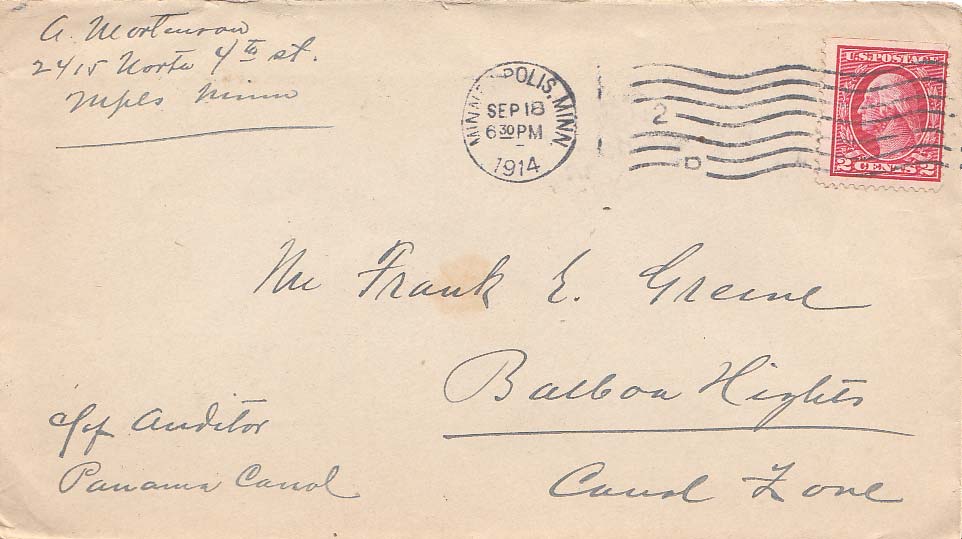 A. Mortenson
2415 North 4th st.
Mpls Minn
MINNEAPOLIS, MINN.
SEP 18
6 30 PM
1914
2
D
U.S. POSTAGE
2 CENTS 2
Mr Frank E. Greene
Balboa Hights
Canal Zone
c/of Auditor
Panama Canal